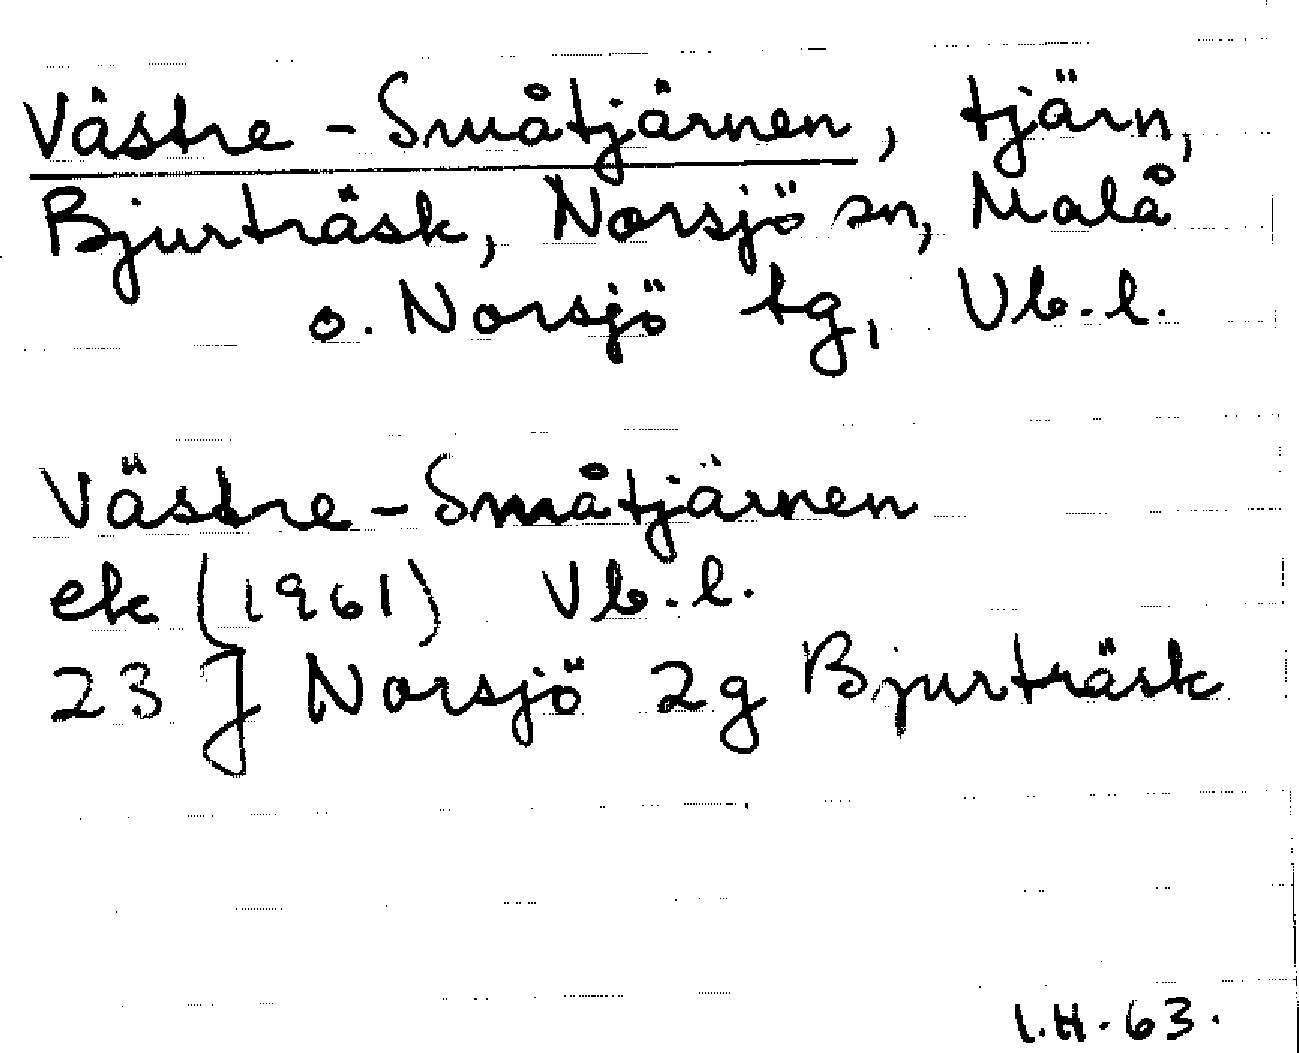 Västre-Småtjärnen, tjärn,
Bjurträsk, Norsjö sn, Malå
o. Norsjö tg, Vb.l.
Västre-Småtjärnen
ek (1961) Vb.l.
23 J Norsjö 2g Bjurträsk
I.H.63.